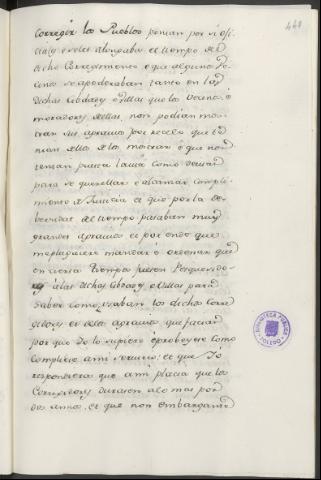 440
corregir los Pueblos ponian por si ofi
ciales e veles alongaba el tiempo del
dicho Corregimiento e que alguna Be
cenes se apoderaban tanto en las
dichas Cibdades e villas que los vecinos e
moradores dellas, non podian mos
trar sus agravios por recelo que te
nian dellos de los mostrar e que non
tenian para como devian
para se querellar e alcanzar compli
miento de Justicia e que por la bre
bedat del tiempo pasaban muy
grandes agravios e por ende que
me pluguiere mandar e ordenar que
en cierto tiempo fuesen Pesqueridor
es a las dichas Cibdades e Villas para
saber como usaban los dichos Corre
gidores e de los agravios que facian
por que Yo lo supiese e probeyese como
compliese a mi servicio: e que Yo
respondiera que a mi placia que los
Corregidores durasen a lo mas por
dos años, e que non embargante
BIBLIOTECA PUBLICA
TOLEDO